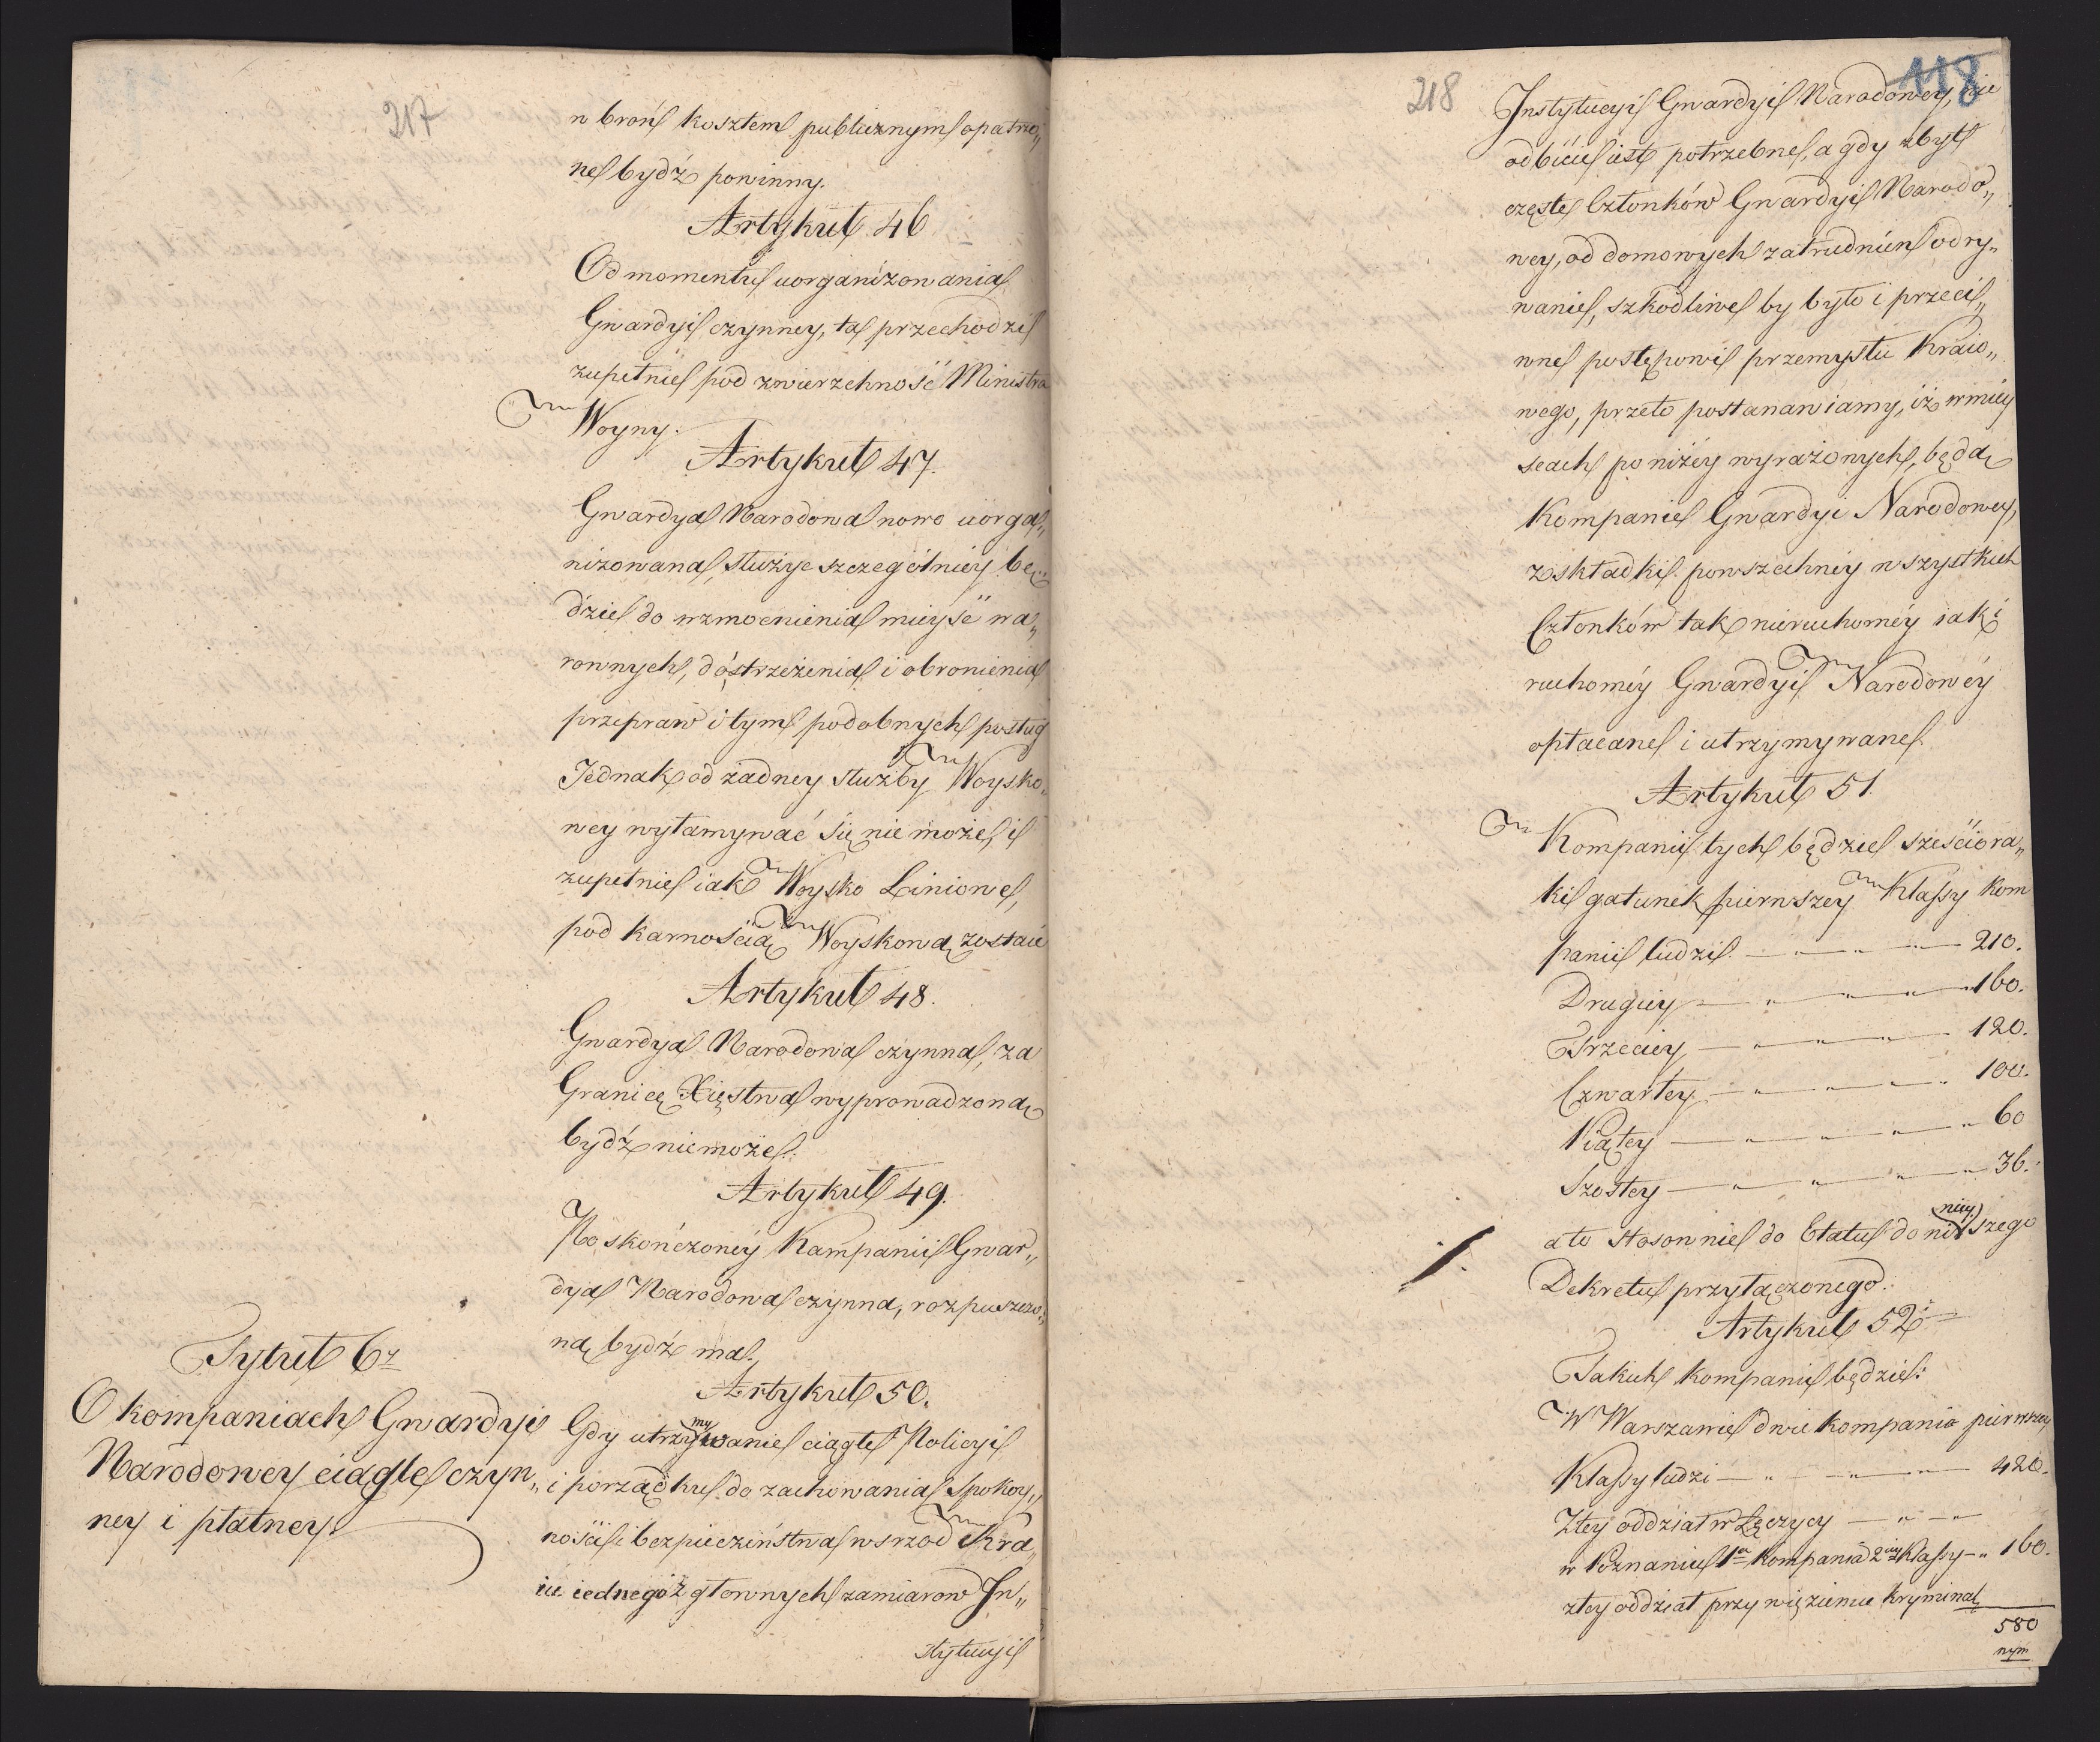 217
w broń kosztem publicznym opatrzo„
ne bydź powinny.
Artykuł 46
Od momentu uorganizowania
Gwardyi czynney, ta przechodzi
zupełnie pod zwierzchność Ministra
Woyny.
Artykuł 47.
Gwardya Narodowa nowo uorga„
nizowana, służyc szczególniey bę„
dzie do wzmocnienia mieysc wa„
rownych, do strzeżenia i obronienia
przepraw i tym podobnych posług
Jednak od żadney służby Woysko„
wey wyłamywać się nie może, i
zupełnie iak Woysko Liniowe,
pod karnością Woyskową zostaie
Artykuł 48.
Gwardya Narodowa czynna, za
Granicę Xięstwa wyprowadzoną
bydź niemoże.
Artykuł 49.
Po skończoney Kampanii Gwar„
dya Narodowa czynna, rozpuszczo„
ną bydź ma.
Tytuł 6ty
O kompaniach Gwardyi
Narodowey ciągle czyn„
ney i płatney.
Artykuł 50.
Gdy utrzymywanie ciągłe Policyi
i porządku do zachowania Spokoy„
ności i bezpieczeństwa wsrzod Kra„
iu iednego z głownych zamiarow In„
stytucyi
218
118
Instytucyi Gwardyi Narodowey, nie
odbicie iest potrzebne, a gdy zbyt
częste Członków Gwardyi Narodo„
wey, od domowych zatrudnień odry„
wanie, szkodliwe by było i przeci„
wne postępowi przemysłu Kraio„
wego, przeto postanawiamy, iż w miey
scach poniżey wyrażonych, będą
Kompanie Gwardyi Narodowey,
z składki powszechney wszystkich
Członków tak nieruchomey iak i
ruchomey Gwardyi Narodowéy
opłacane i utrzymywane
Artykuł 51.
Kompanii tych będzie sześciora„
ki gatunek pierwszey Klassy Kom
panii ludzi. — „ — „ — 210.
Drugiey — „ — „ — „ 160.
Trzeciey — „ — „ — „ — 120.
Czwartey — „ — „ — „ 100.
Piątey — „ — „ — „ — „ 60
Szostey — „ — „ — „ — „ 36.
a to stosownie do Etatu do ninieyszego
Dekretu przyłączonego.
Artykuł 52.
Takich kompanii będzie:
W Warszawie dwie kompania pierwszey
Klassy ludzi — „ — „ — 420.
Ztey oddział w Łęczycy — „ — „ —
w Poznaniu 1a kompania 2iey Klassy — „ 160.
ztey oddział przy więzieniu kryminal
580
nym